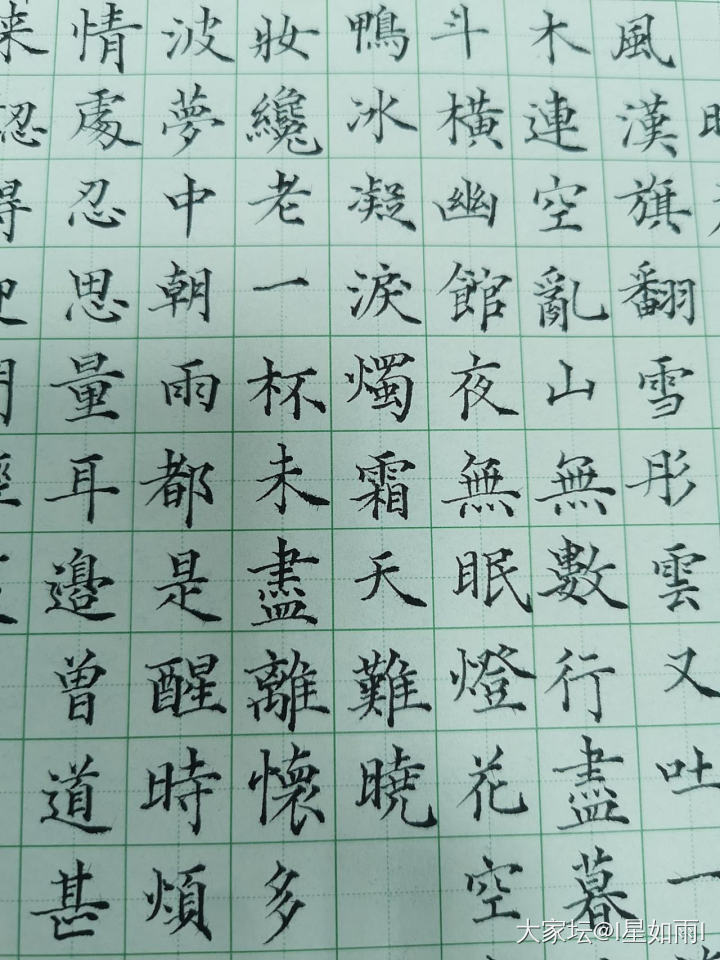 風漢旗翻雪彤雲又吐一
木連空亂山無數行盡暮
斗橫幽館夜無眠燈花空
鴨冰凝淚燭霜天難曉
妝纔老一杯未盡離懷多
波夢中朝雨都是醒時煩
情處忍思量耳邊曾道甚
来
大家坛@I星如雨I